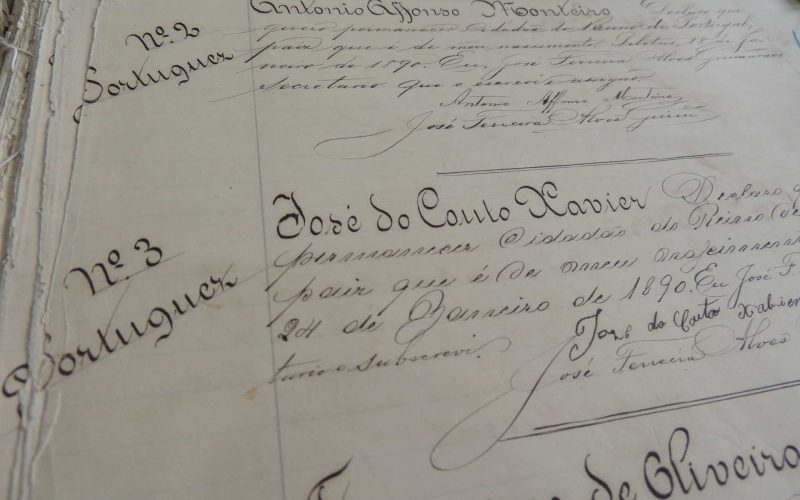 Nº. 2
Portuguez
Antonio Affonso Monteiro Declaro que
quero permanecer Cidadão do Reino de Portugal,
paiz que é de meu nascimento. Pelotas, 18 de Ja-
neiro de 1890. Eu, José Ferreira Alves Guimarães
secretario que o escrevi e assigno.
Antonio Affonso Monteiro
José Ferreira Alves Guim
Nº. 3
Portuguez
José do Couto Xavier Declaro q
permanecer Cidadão do Reino de
paiz que é de meu nascimento
24 de Janeiro de 1890. Eu José F
tario o subscrevi.
José do Couto Xabier
José Ferreira Alves
de Oliveira